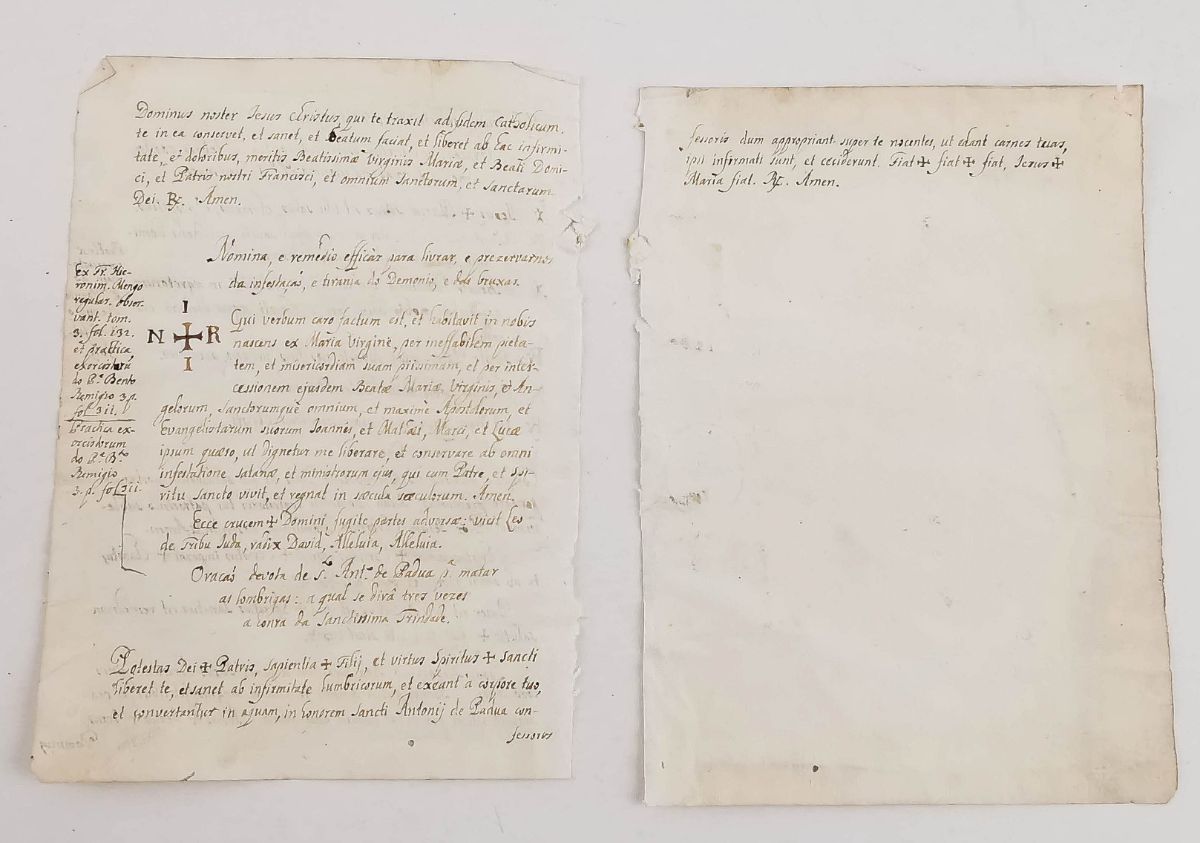 Dominus noster Jesus Christus, qui te traxit ad fidem Catholicum.
te in ea conservet, et sanet, et Beatum faciat, et liberet ab hac infirmi-
tate, et doloribus, meritis Beatissimæ Virginis Mariæ, et Beati Domi-
ci, et Patris nostri Francisci, et omnium Sanctorum, et Sanctarum
Dei. R/. Amen.
Nomina, e remedio efficár para livrar, e prezervarnos
da infestaçaõ, e tirania do Demonio, e das bruxas.
Ex Fr. Hie-
ronim. Mengo
regular. obser.
vant. tom.
3. fol. 132.
et practica
exorcistarũ
do P.e Bento
Remigio 3. p.
fol. 311.
Practica ex-
orcistorum
do P.e B.to
Remigio
3. p. fol. 311.
I
N ✠ R
I
Qui verbum caro factum est, et habitavit in nobis
nascens ex Maria Virgine, per ineffabilem pieta-
tem, et misericordiam suam piissimam, et per inter-
cessionem ejusdem Beatæ Mariæ Virginis, et An-
gelorum, Sanctorumque omnium, et maxime Apostolorum, et
Evangelistarum suorum Joannis, et Mathæi, Marci, et Lucæ
ipsum quæso, ut dignetur me liberare, et conservare ab omni
infestatione satanæ, et ministrorum ejus, qui cum Patre, et Spi-
ritu Sancto vivit, et regnat in sæcula sæculorum. Amen.
Ecce crucem ✠ Domini, fugite partes adversæ: vicit Leo
de Tribu Juda, radix David, Alleluia, Alleluia.
Oraçaõ devota de S.to Ant.o de Padua p.a matar
as lombrigas: a qual se dirà tres vezes
a honra da Sanctissima Trindade.
Potestas Dei ✠ Patris, sapientia ✠ Filij, et virtus Spiritus ✠ Sancti
liberet te, et sanet ab infirmitate lumbricorum, et exeant à corpore tuo,
et convertantur in aquam, in honorem Sancti Antonij de Padua con-
fessoris
fessoris dum appropriant super te nocentes, ut edant carnes tuas,
ipsi infirmati sunt, et ceciderunt. Fiat ✠ fiat ✠ fiat, Jesus ✠
Maria fiat. R/. Amen.